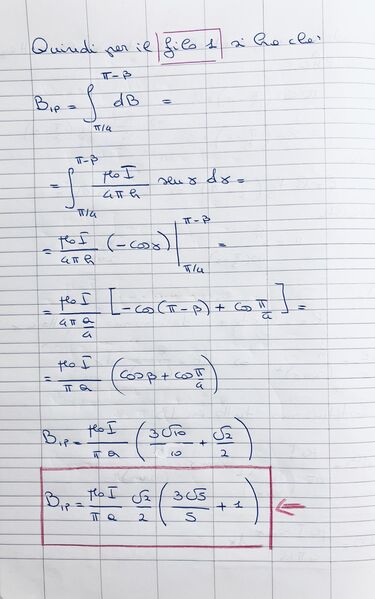 Quindi per il filo 1 si ha che:
B₁ₚ = ∫_{π/4}^{π-β} dB =
= ∫_{π/4}^{π-β} μ₀I/4πh sen γ dγ =
= μ₀I/4πh (-cos γ) |_{π/4}^{π-β} =
= μ₀I/(4π a/4) [-cos(π-β) + cos π/4] =
= μ₀I/πa (cos β + cos π/4)
B₁ₚ = μ₀I/πa (3√10/10 + √2/2)
B₁ₚ = μ₀I/πa √2/2 (3√5/5 + 1) ←